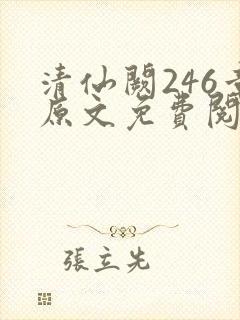 清仙阙246章
原文免費閱
張立先